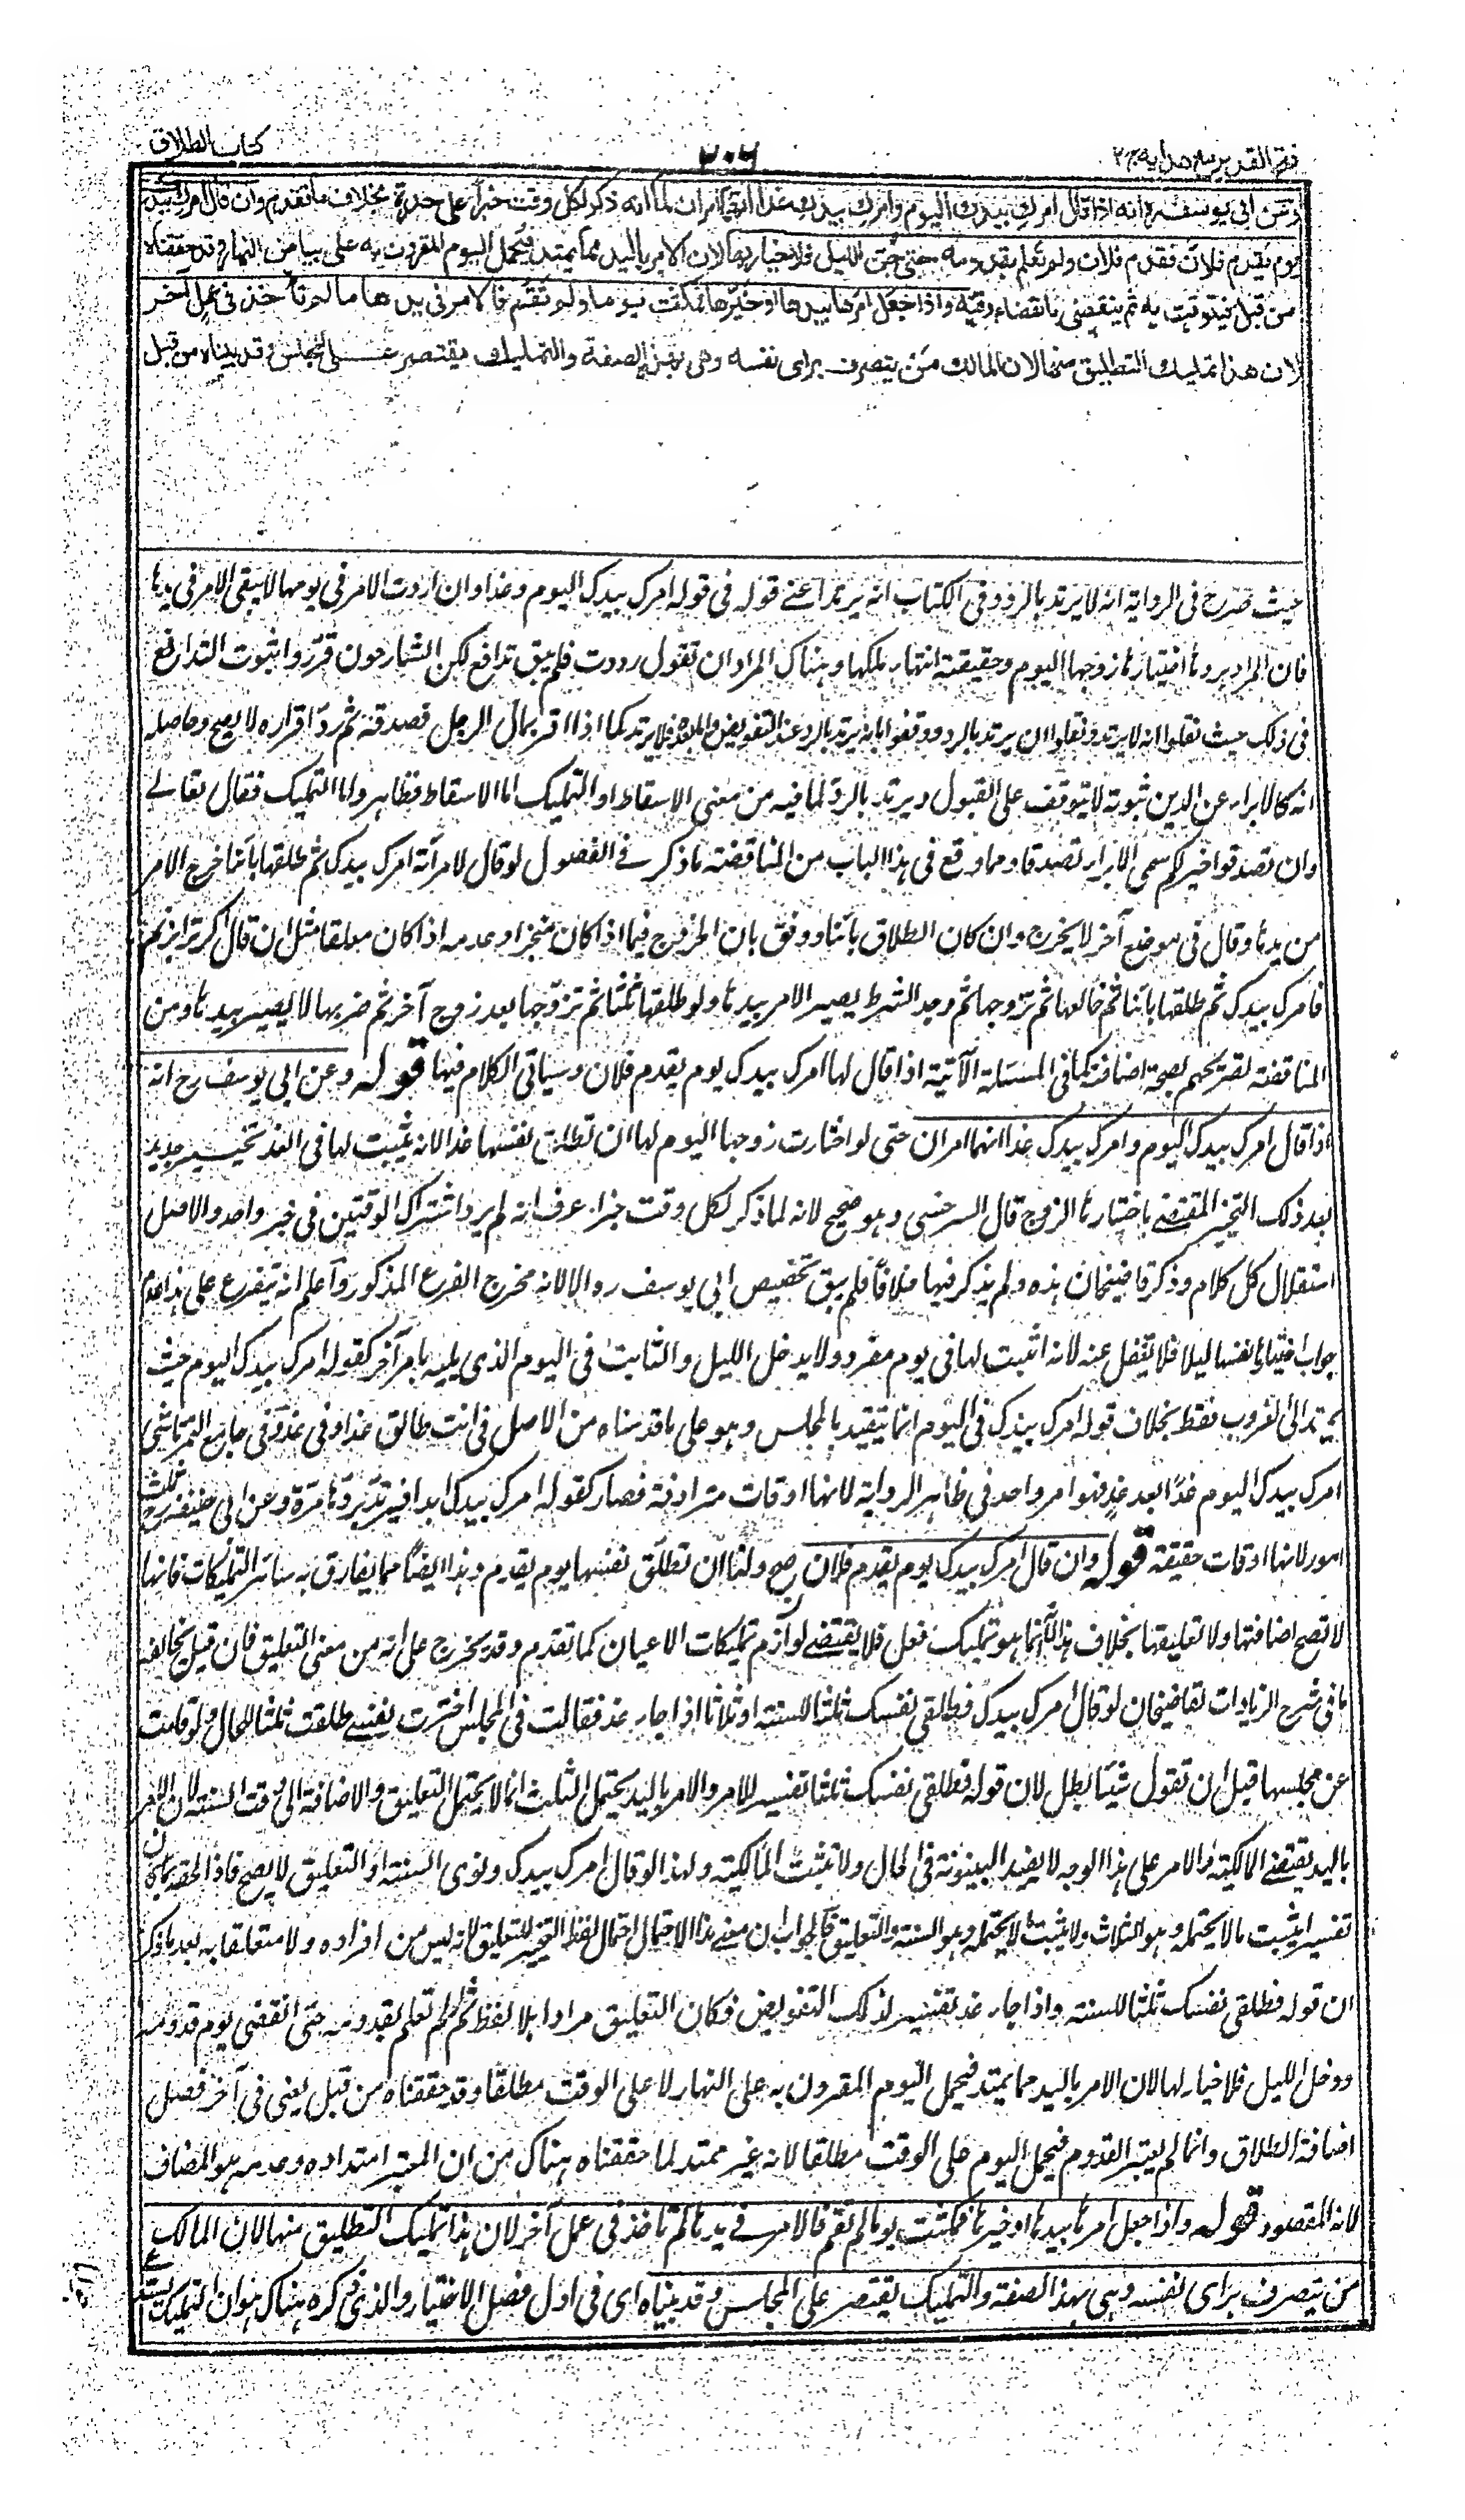 فتح القدير مع هدايه ج ٢
٣٠٦
كتاب الطلاق
وعن ابي يوسف رح انه اذا قال امرك بيدك اليوم وامرك بيدك غدا انهما امران لما انه ذكر لكل وقت خبرا على حدة بخلاف ما تقدم وان قال امرك بيدك
يوم يقدم فلان فقدم فلان ولم تعلم بقدومه حتى جن الليل فلا خيار لها لان الامر باليد مما يمتد فيحمل اليوم المقرون به على بياض النهار وقد حققناه
من قبل فيتوقت به ثم ينقضي بانقضاء وقته واذا جعل امرها بيدها او خيرها فمكثت يوما ولم تقم فالامر في يدها ما لم تأخذ في عمل آخر
لان هذا تمليك التطليق منها لان المالك من يتصرف برای نفسه وهي بهذه الصفة والتمليك يقتصر على المجلس وقد بيناه من قبل
حيث صرح في الرواية انه لا يرتد بالرد وفي الكتاب انه يرتد اعنے قوله في قوله امرك بيدك اليوم وغدا وان ردت الامر في يومها لا يبقى الامر في يدها
فان المراد بردها اختيارها زوجها اليوم وحقيقته انتهاء ملكها وهناك المراد ان تقول رددت فلم يبق تدافع لكن الشارحون قرروا ثبوت التدافع
في ذلك حيث نقلوا انه لا يرتد ونقلوا ان يرتد بالرد ووفقوا بانه يرتد بالرد عند التفويض واما بعده فلا يرتد كما اذا اقر بمال الرجل فصدقه ثم رد اقراره لا يصح وحاصله
انه كالابراء عن الدين ثبوته لا يتوقف على القبول ويرتد بالرد لما فيه من معنى الاسقاط او التمليك اما الاسقاط فظاهر واما التمليك فقال تعالے
وان تصدقوا خير لكم سمى الابراء تصدقا ومما وقع في هذا الباب من المناقضة ما ذكر فے الفصول لو قال لامرأته امرك بيدك ثم طلقها بائنا خرج الامر
من يدها وقال في موضع آخر لا يخرج وان كان الطلاق بائنا ووفق بان الخروج فيما اذا كان منجزا وعدمه اذا كان معلقا مثل ان قال اكر ترا بزنم
فامرك بيدك ثم طلقها بائنا ثم خالعها ثم تزوجها ثم وجد الشرط يصير الامر بيدها ولو طلقها ثلثا ثم تزوجها بعد زوج آخر ثم ضربها لا يصير بيدها ومن
المناقضة تصريحهم بصحة اضافته كما في المسئلة الآتية اذا قال لها امرك بيدك يوم يقدم فلان وسياتى الكلام فيها قوله وعن ابي يوسف رح انه
اذا قال امرك بيدك اليوم وامرك بيدك غدا انهما امران حتى لو اختارت زوجها اليوم لها ان تطلق نفسها غدا لانه يثبت لها في الغد تخيير جديد
بعد ذلك التخيير المقضے باختيارها الزوج قال السرخسي وهو صحيح لانه لما ذكر لكل وقت خبرا عرف انه لم يرد اشتراك الوقتين في خبر واحد والاصل
استقلال كل كلام وذكر قاضيخان هذه ولم يذكر فيها خلافا فلم يبق تخصيص ابي يوسف رہ الا لانه مخرج الفرع المذكور واعلم انه يتفرع على هذا عدم
جواب اختيارها نفسها ليلا فلا يغفل عنه لانه اثبت لها في يوم مفرد ولا يدخل الليل والثابت في اليوم الذي يليه بامر آخر كقوله امرك بيدك اليوم حيث
يمتد الى الغروب فقط بخلاف قوله امرك بيدك في اليوم انما يتقيد بالمجلس وهو على ما قدمناه من الاصل في انت طالق غدا وفي غد وفي جامع التمرتاشي
امرك بيدك اليوم غدا بعد غد فهو امر واحد في ظاهر الرواية لانها اوقات مترادفة فصار كقوله امرك بيدك ابدا فيرتد بردها مرة وعن ابي حنيفة رح ثلث
امور لانها اوقات حقيقة قوله وان قال امرك بيدك يوم يقدم فلان صح ولها ان تطلق نفسها يوم يقدم وهذا ايضا مما يفارق به سائر التمليكات فانها
لا تصح اضافتها ولا تعليقها بخلاف هذا لانه انما هو تمليك فعل فلا يقتضے لوازم تمليكات الاعيان كما تقدم وقد يخرج على انه من معنى التعليق فان قيل يخالفه
ما في شرح الزيادات لقاضيخان لو قال امرك بيدك فطلقي نفسك ثلثا للسنة او ثلاثا اذا جاء غد فقالت في المجلس اخترت نفسے طلقت ثلثا للحال ولو قامت
عن مجلسها قبل ان تقول شيئا بطل لان قوله فطلقي نفسك ثلثا تفسير للامر والامر باليد يحتمل الثلث انما لا يحتمل التعليق والاضافة الى وقت السنة لان الامر
باليد يقتضے المالكية والامر على هذا الوجه لا يفيد البينونة في الحال ولا تثبت المالكية ولهذا لو قال امرك بيدك ونوى السنة او التعليق لا يصح فاذا الحقه بما كان
تفسيرا يثبت ما لا يحتمله وهو الثلاث ولا يثبت ما لا يحتمله وهو السنة والتعليق فالجواب ان معنے هذا الاحتمال احتمال لفظ التخيير للتعليق لانه ليس من افراده ولا متعلقا به بعد ما ذكر
ان قوله فطلقي نفسك ثلثا للسنة واذا جاء غد تفسير لذلك التفويض فكان التعليق مرادا بلا لفظ ثم لو لم تعلم بقدومه حتى انقضى يوم قدومه
ودخل الليل فلا خيار لها لان الامر باليد مما يمتد فيحمل اليوم المقرون به على النهار لا على الوقت مطلقا وقد حققناه من قبل يعنى في آخر فصل
اضافة الطلاق وانما لم يعتبر القدوم فيحمل اليوم على الوقت مطلقا لانه غير ممتد لما حققناه هناك من ان المعتبر امتداده وعدمه هو المضاف
لانه المقصود قوله واذا جعل امرها بيدها او خيرها فمكثت يوما لم تقم فالامر فے يدها ما لم تاخذ في عمل آخر لان هذا تمليك التطليق منها لان المالك
من يتصرف برای نفسه وهي بهذه الصفة والتمليك يقتصر على المجلس وقد بيناه اى في اول فصل الاختيار والذي ذكره هناك هو ان التمليك يستدعے